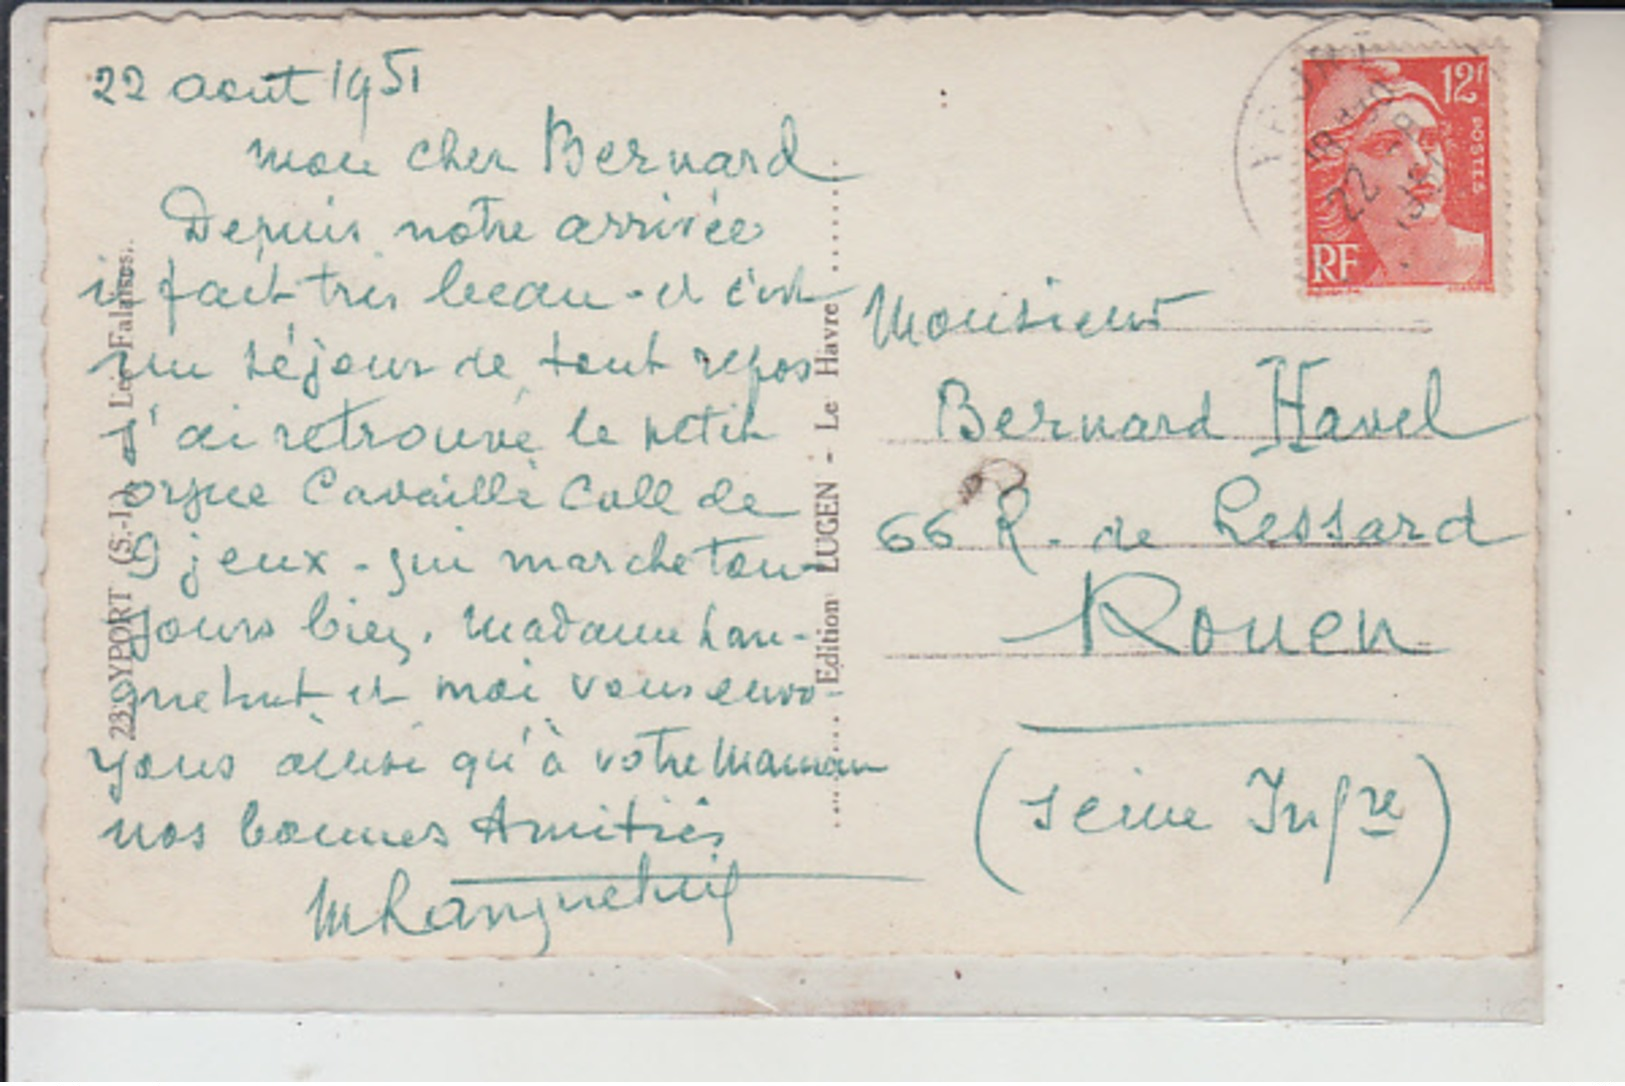 22 aout 1951
mon cher Bernard
Depuis notre arrivée
il fait très beau - et c'est
un séjour de tout repos
J'ai retrouvé le petit
orgue Cavaillé Coll de
9 jeux - qui marche tou-
jours bien. Madame Lan-
quetuit et moi vous envo-
yons ainsi qu'à votre Maman
nos bonnes Amitiés
MLanquetuit
23 YPORT (S.-I.) Les Falaises.
Edition LUGEN - Le Havre
12f
POSTES
RF
YPORT
22 - 8
1951
Monsieur
Bernard Havel
66 R. de Lessard
Rouen
(Seine Infre)